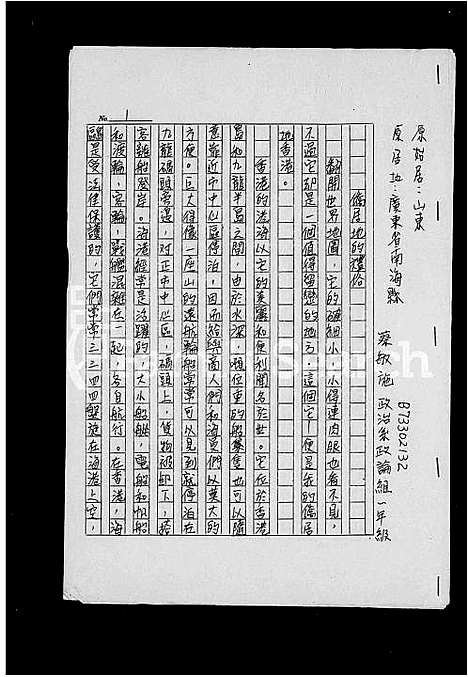 原始居:山東
原居地:廣東省南海縣
蔡敏施 政治系政論組一年級
B73302132
No. 1
僑居地的禮俗
翻開世界地圖,它的確細小,小得連肉眼也看不見,
不過它却是一個值得留戀的地方,這個它—便是我的僑居
地香港。
香港的港海以它的美麗和便利聞名於世。它位於香港
島和九龍半島之間,由於水深,
意靠近市中心區停泊,因而給與商人們和海員們以莫大的
方便。巨大得像一座山的遠航輪船常常可以見到就停泊在
九龍碼頭旁邊,対正市中心區,碼頭上,貨物被卸下,搭
客離船登岸。海港經常是活躍的,大小船舶,電船和帆船
和渡輪,客輪,戰艦混雜在一起,各自航行。在香港,海
鷗是受法律保護的,它們常常三三四四盤旋在海港上空,